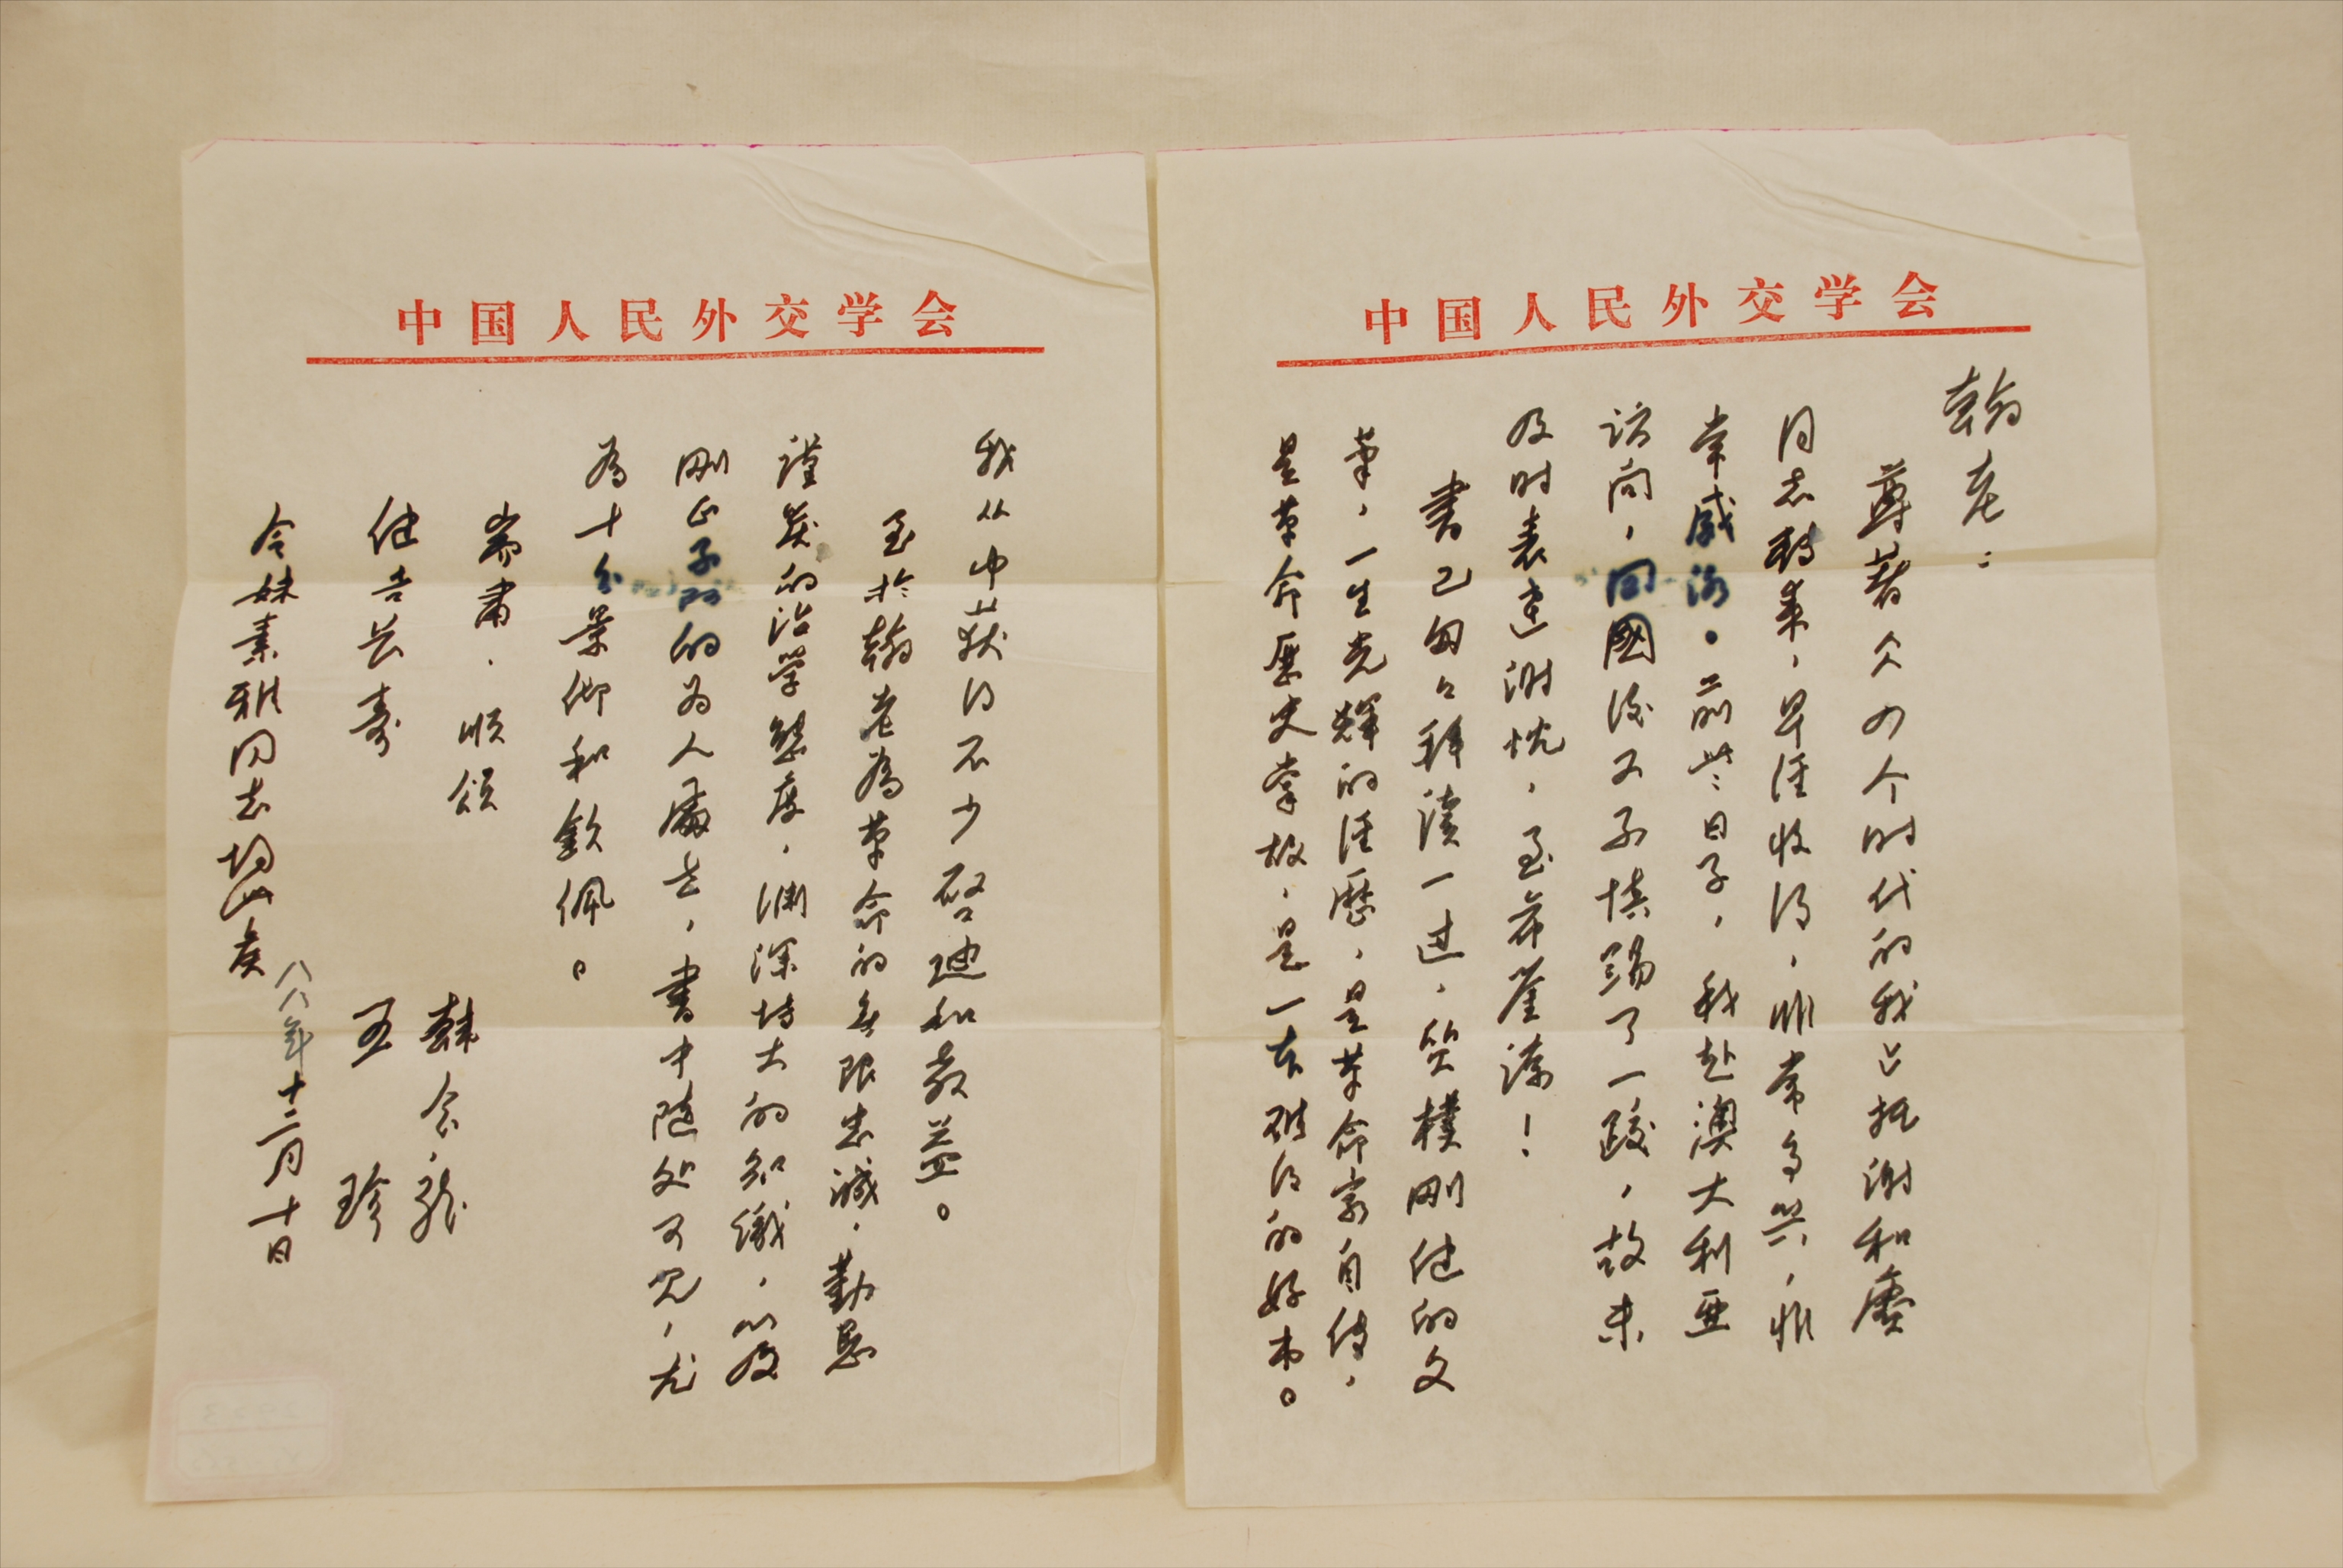 中国人民外交学会
翰老：
尊著《四个时代的我》托谢和赓
同志转来，早经收得，非常高兴，非
常感激。前些日子，我赴澳大利亚
访问，回国后又不慎踢了一跤，故未
及时表达谢忱，至希鉴谅！
书已匆匆拜读一过，质朴刚健的文
笔，一生光辉的经历，是革命家自传，
是革命历史掌故，是一本难得的好书。
中国人民外交学会
我从中获得不少启迪和教益。
至于翰老为革命的无限忠诚，勤恳
谨严的治学态度，渊深博大的知识，以及
刚正不阿的为人处世，书中随处可见，尤
为十分景仰和钦佩。
耑肃，顺颂
健吉长寿
令妹素雅同志均此候
韩念龙
王珍
八八年十二月十日